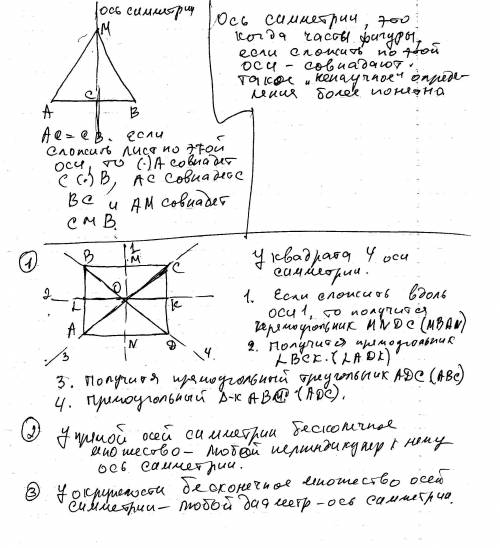 ось симметрии
M
A
C
B
AC = CB. если
сложить лист по этой
оси, то (·)A совпадет
с (·)B, AC совпадет с
BC и AM совпадет
с MB.
Ось симметрии, это
когда части фигуры,
если сложить по этой
оси – совпадают.
такое "ненаучное" опреде-
ления более понятна
1
B
1
M
C
2
L
O
K
A
N
D
3
4.
У квадрата 4 оси
симметрии.
1. Если сложить вдоль
оси 1, то получится
прямоугольник MNDC (MBAN)
2. Получится прямоугольник
LBCK. (LADK)
3. Получится прямоугольный треугольник ADC (ABC)
4. Прямоугольный Δ-к (ADC).
2 У прямой осей симметрии бесконечное
множество – любой перпендикуляр к нему
ось симметрии.
3 У окружности бесконечное множество осей
симметрии – любой диаметр – ось симметрии.